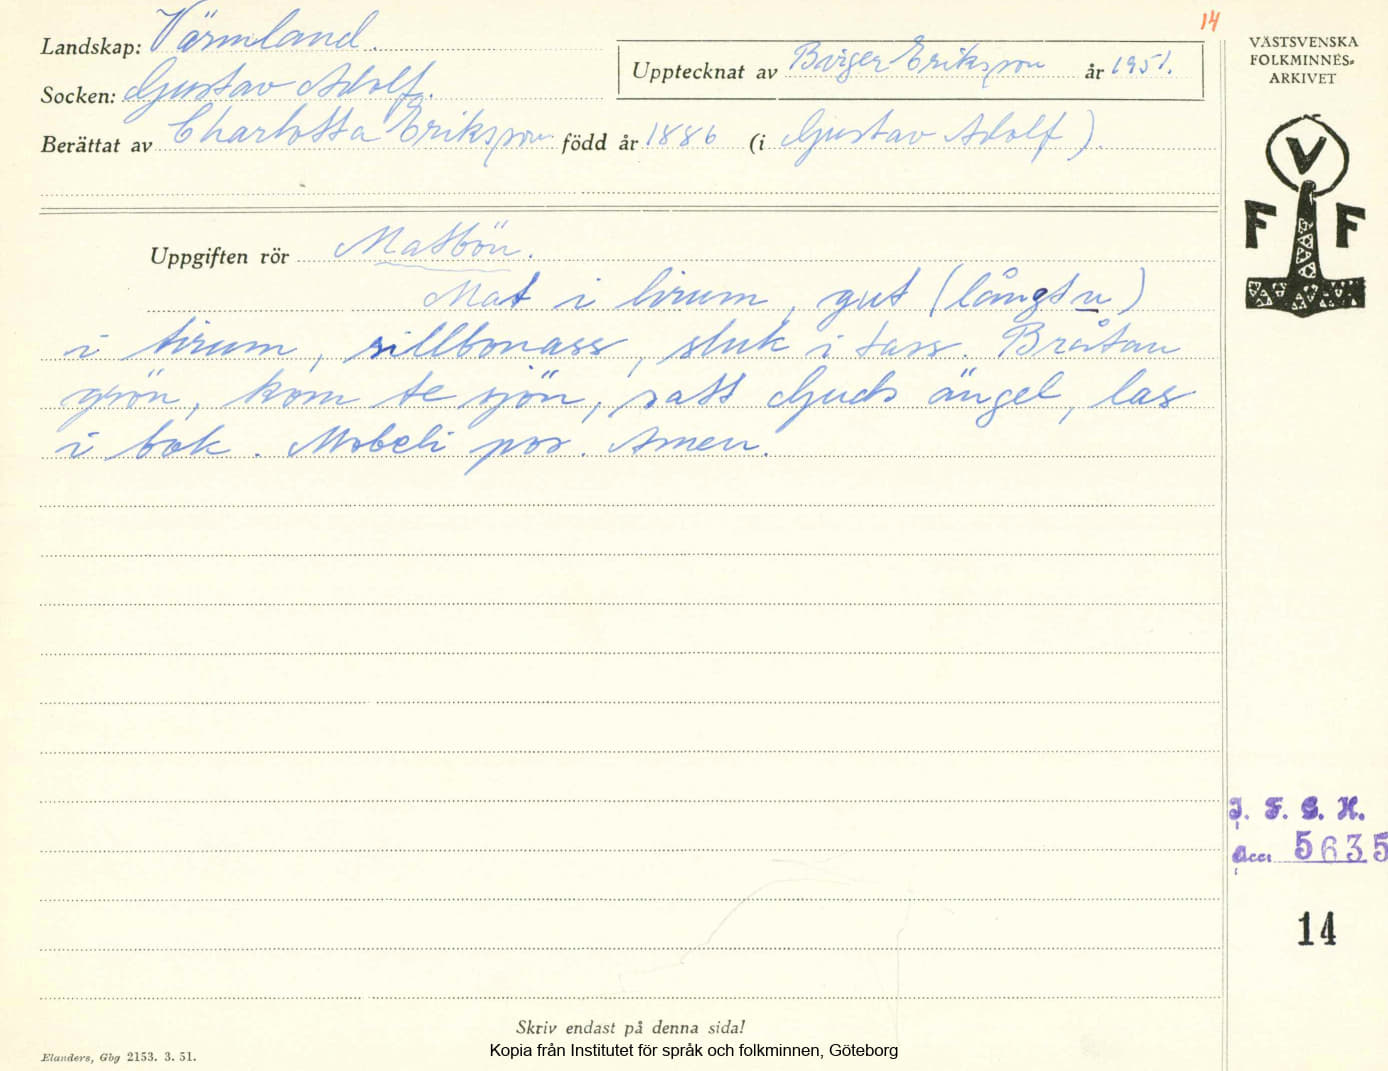 14
Landskap: Värmland.
Socken: Gustav Adolf.
Upptecknat av Birger Eriksson år 1951.
Berättat av Charlotta Eriksson född år 1886 (i Gustav Adolf).
VÄSTSVENSKA
FOLKMINNES-
ARKIVET
V
F F
Uppgiften rör Matbön.
Mat i lirum, gut (långt u)
i tirum, sillbonass, sluk i tass. Bråtan
grön, kom te sjön, satt Guds ängel, las
i bok. Mobeli pos. Amen.
I. F. G. H.
Acc. 5635
14
Skriv endast på denna sida!
Elanders, Gbg 2153. 3. 51.
Kopia från Institutet för språk och folkminnen, Göteborg